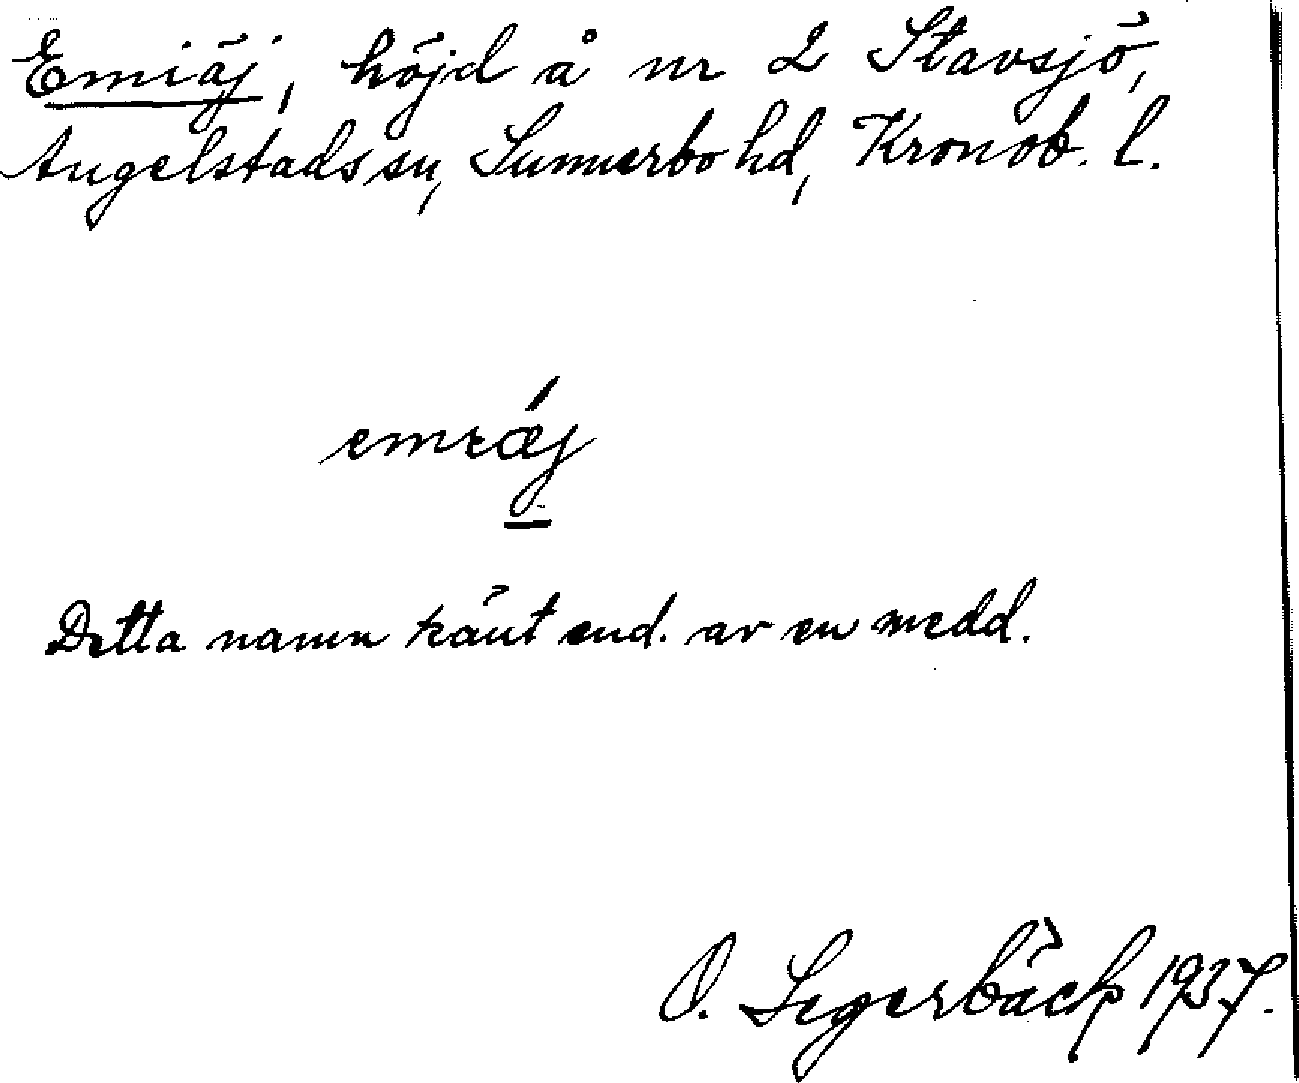 Emiäj, höjd å nr 2 Stavsjö,
Angelstads sn, Sunnerbo hd, Kronob. l.
emɩǽj
Detta namn känt end. av en medd.
O. Segerbäck 1937.